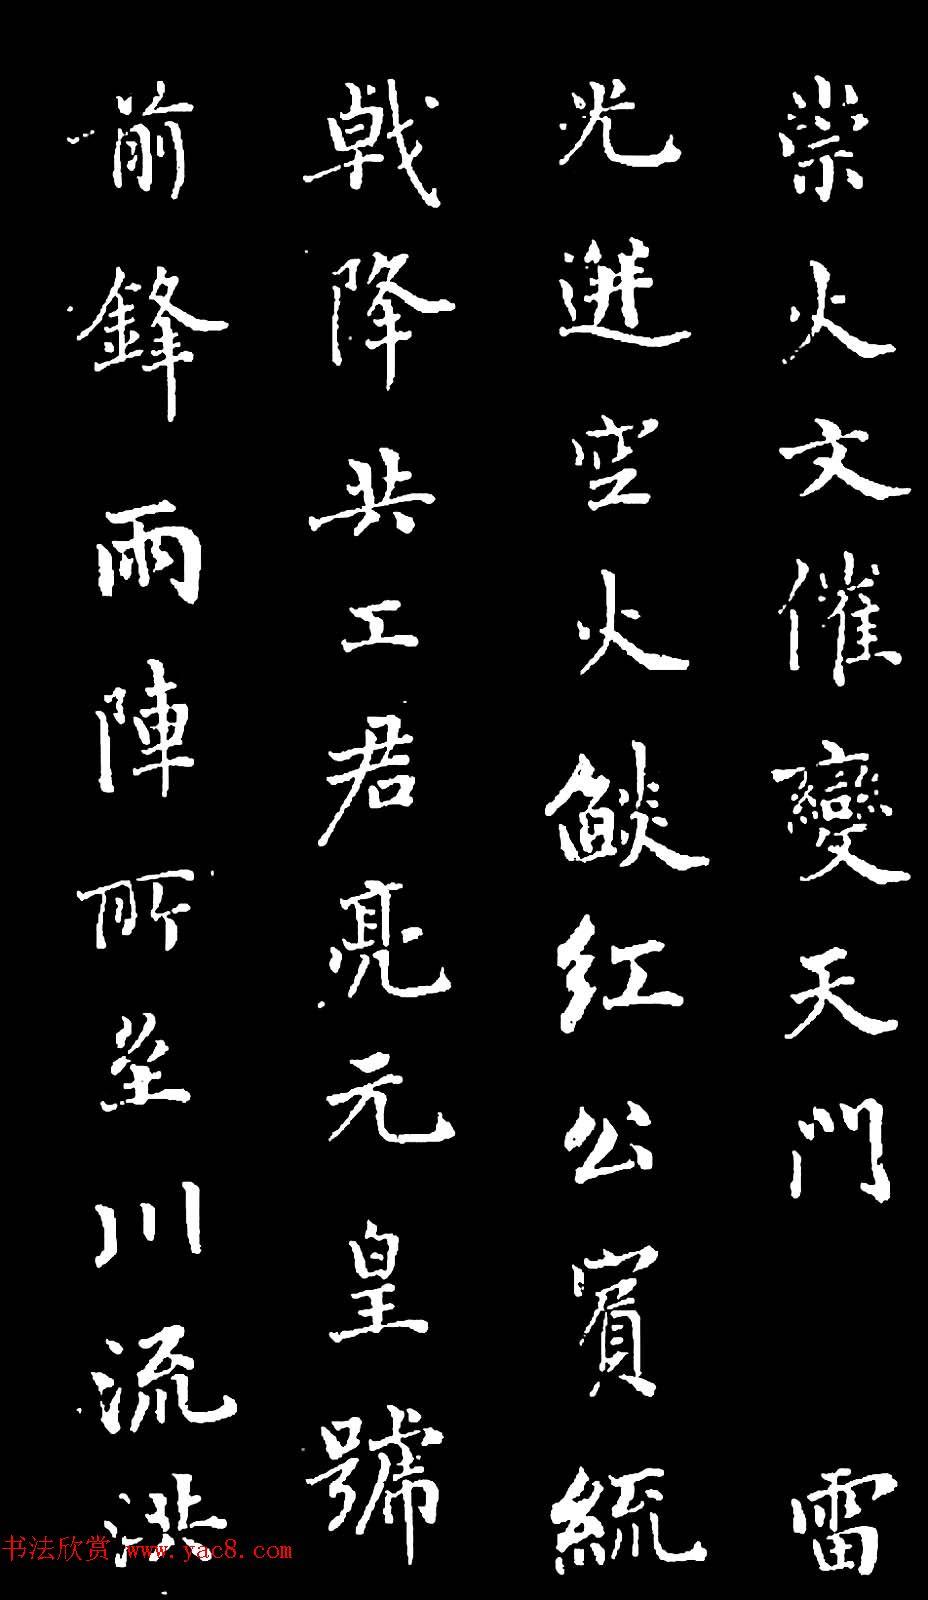 崇火文催變天門 雷
光迸空火燄紅公賓統
戟降共工君亮元皇號
前鋒雨陣所至川流洪
书法欣赏 www.yac8.com